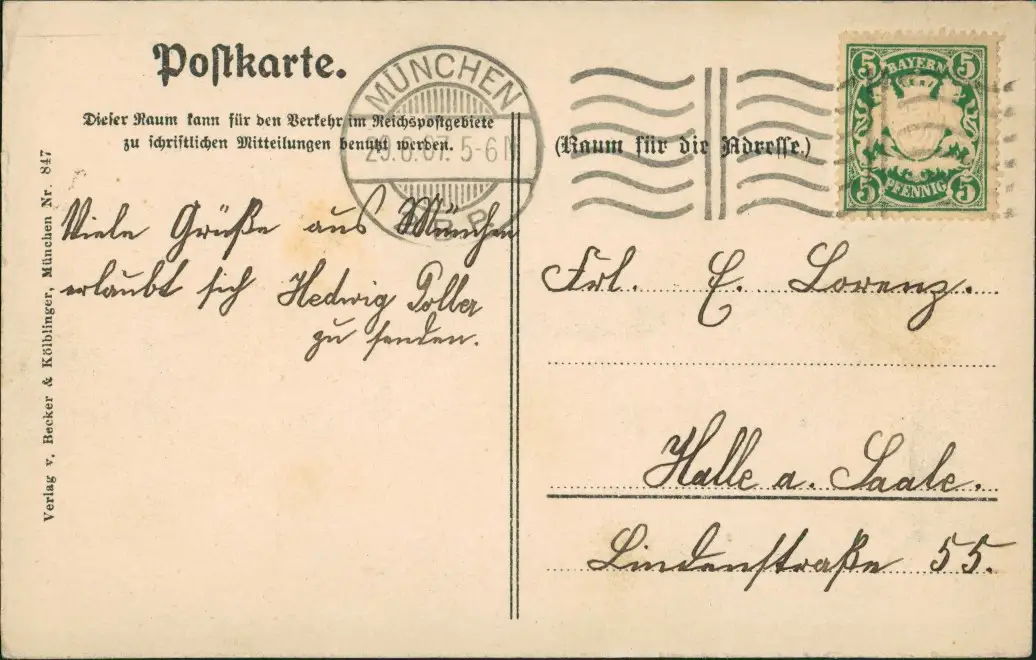 Postkarte.
Dieser Raum kann für den Verkehr im Reichspostgebiete
zu schriftlichen Mitteilungen benützt werden.
MÜNCHEN
29.6.07. 5-6 N
B.P.
(Raum für die Adresse.)
5 BAYERN 5
5 PFENNIG 5
Viele Grüße aus München
erlaubt sich Hedwig Poller
zu senden.
Frl. E. Lorenz.
Halle a. Saale.
Lindenstraße 55.
Verlag v. Becker & Kölblinger, München Nr. 847